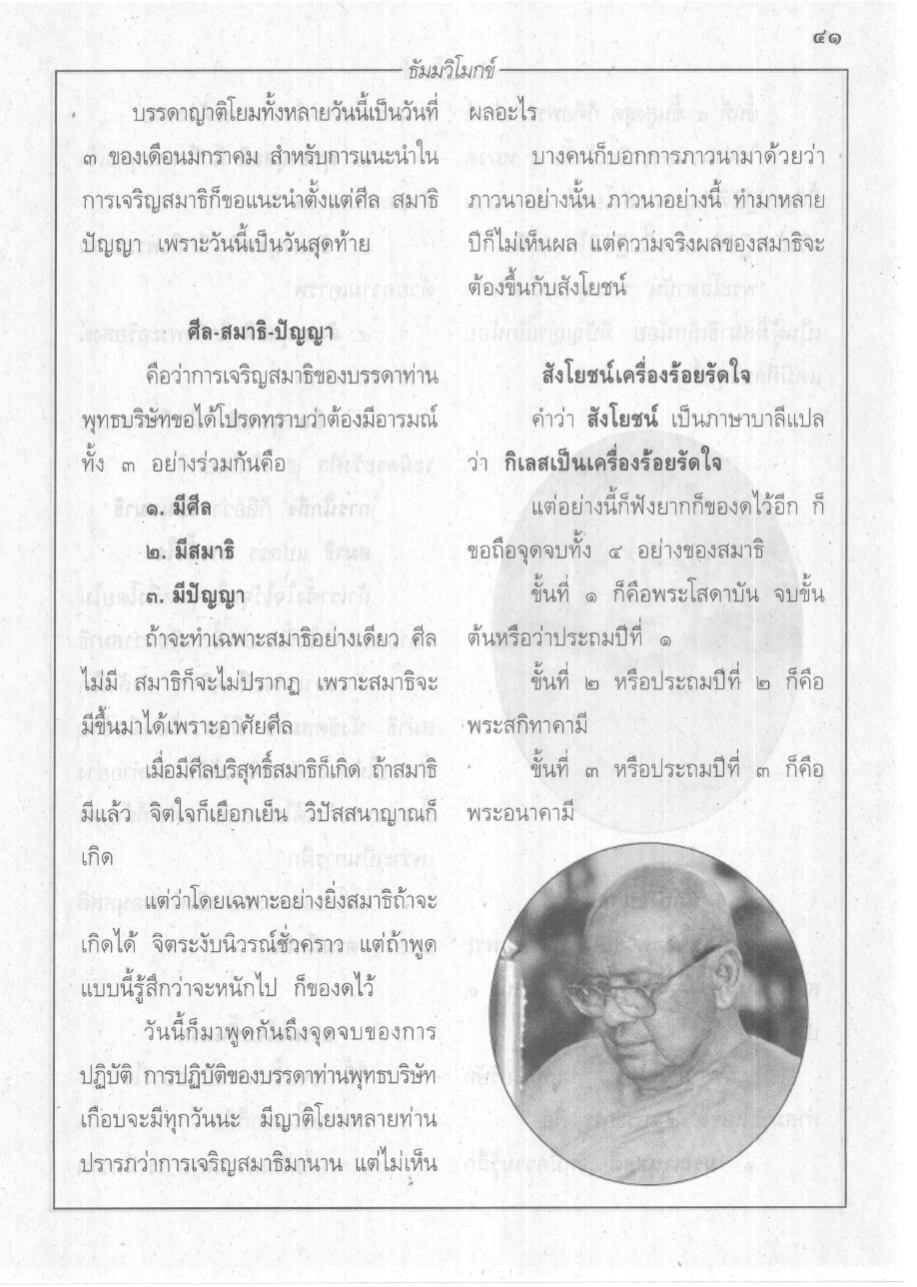 ๔๑
ธัมมวิโมกข์
บรรดาญาติโยมทั้งหลายวันนี้เป็นวันที่
๓ ของเดือนมกราคม สำหรับการแนะนำใน
การเจริญสมาธิก็ขอแนะนำตั้งแต่ศีล สมาธิ
ปัญญา เพราะวันนี้เป็นวันสุดท้าย
ศีล-สมาธิ-ปัญญา
คือว่าการเจริญสมาธิของบรรดาท่าน
พุทธบริษัทขอได้โปรดทราบว่าต้องมีอารมณ์
ทั้ง ๓ อย่างร่วมกันคือ
๑. มีศีล
๒. มีสมาธิ
๓. มีปัญญา
ถ้าจะทำเฉพาะสมาธิอย่างเดียว ศีล
ไม่มี สมาธิก็จะไม่ปรากฏ เพราะสมาธิจะ
มีขึ้นมาได้เพราะอาศัยศีล
เมื่อมีศีลบริสุทธิ์สมาธิก็เกิด ถ้าสมาธิ
มีแล้ว จิตใจก็เยือกเย็น วิปัสสนาญาณก็
เกิด
แต่ว่าโดยเฉพาะอย่างยิ่งสมาธิถ้าจะ
เกิดได้ จิตระงับนิวรณ์ชั่วคราว แต่ถ้าพูด
แบบนี้รู้สึกว่าจะหนักไป ก็ของดไว้
วันนี้ก็มาพูดกันถึงจุดจบของการ
ปฏิบัติ การปฏิบัติของบรรดาท่านพุทธบริษัท
เกือบจะมีทุกวันนะ มีญาติโยมหลายท่าน
ปรารภว่าการเจริญสมาธิมานาน แต่ไม่เห็น
ผลอะไร
บางคนก็บอกการภาวนามาด้วยว่า
ภาวนาอย่างนั้น ภาวนาอย่างนี้ ทำมาหลาย
ปีก็ไม่เห็นผล แต่ความจริงผลของสมาธิจะ
ต้องขึ้นกับสังโยชน์
สังโยชน์เครื่องร้อยรัดใจ
คำว่า สังโยชน์ เป็นภาษาบาลีแปล
ว่า กิเลสเป็นเครื่องร้อยรัดใจ
แต่อย่างนี้ก็ฟังยากก็ของดไว้อีก ก็
ขอถือจุดจบทั้ง ๔ อย่างของสมาธิ
ขั้นที่ ๑ ก็คือพระโสดาบัน จบขั้น
ต้นหรือว่าประถมปีที่ ๑
ขั้นที่ ๒ หรือประถมปีที่ ๒ ก็คือ
พระสกิทาคามี
ขั้นที่ ๓ หรือประถมปีที่ ๓ ก็คือ
พระอนาคามี